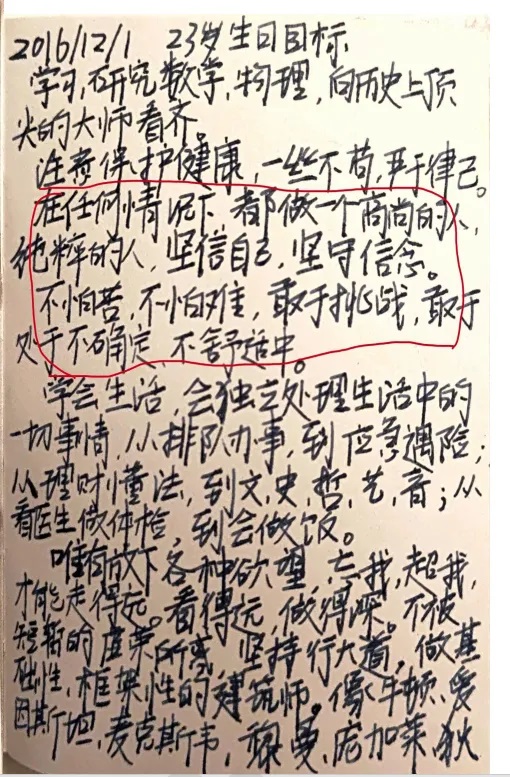 2016/12/1 23岁生日目标
学习,研究数学,物理,向历史上顶
尖的大师看齐。
注意保护健康,一丝不苟,严于律己。
在任何情况下都做一个高尚的人,
纯粹的人,坚信自己,坚守信念。
不怕苦,不怕难,敢于挑战,敢于
处于不确定、不舒适中。
学会生活,会独立处理生活中的
一切事情,从排队办事,到应急遇险;
从理财懂法,到文,史,哲,艺,音;从
看医生做体检,到会做饭。
唯有放下各种欲望,忘我,超我,
才能走得远。看得远,做得深。不被
短暂的虚荣所惑,坚持行大道,做基
础性,框架性的建筑师。像牛顿、爱
因斯坦,麦克斯韦,黎曼,庞加莱,狄